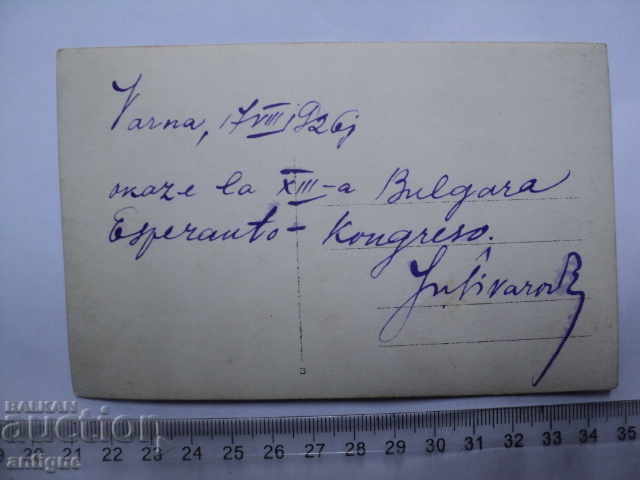 Varna, 17 VIII 1926j
okaze la XIII-a Bulgara
Esperanto-Kongreso.
3
BALKAN
auction
antique
20 21 22 23 24 25 26 27 28 29 30 31 32 33 34 35